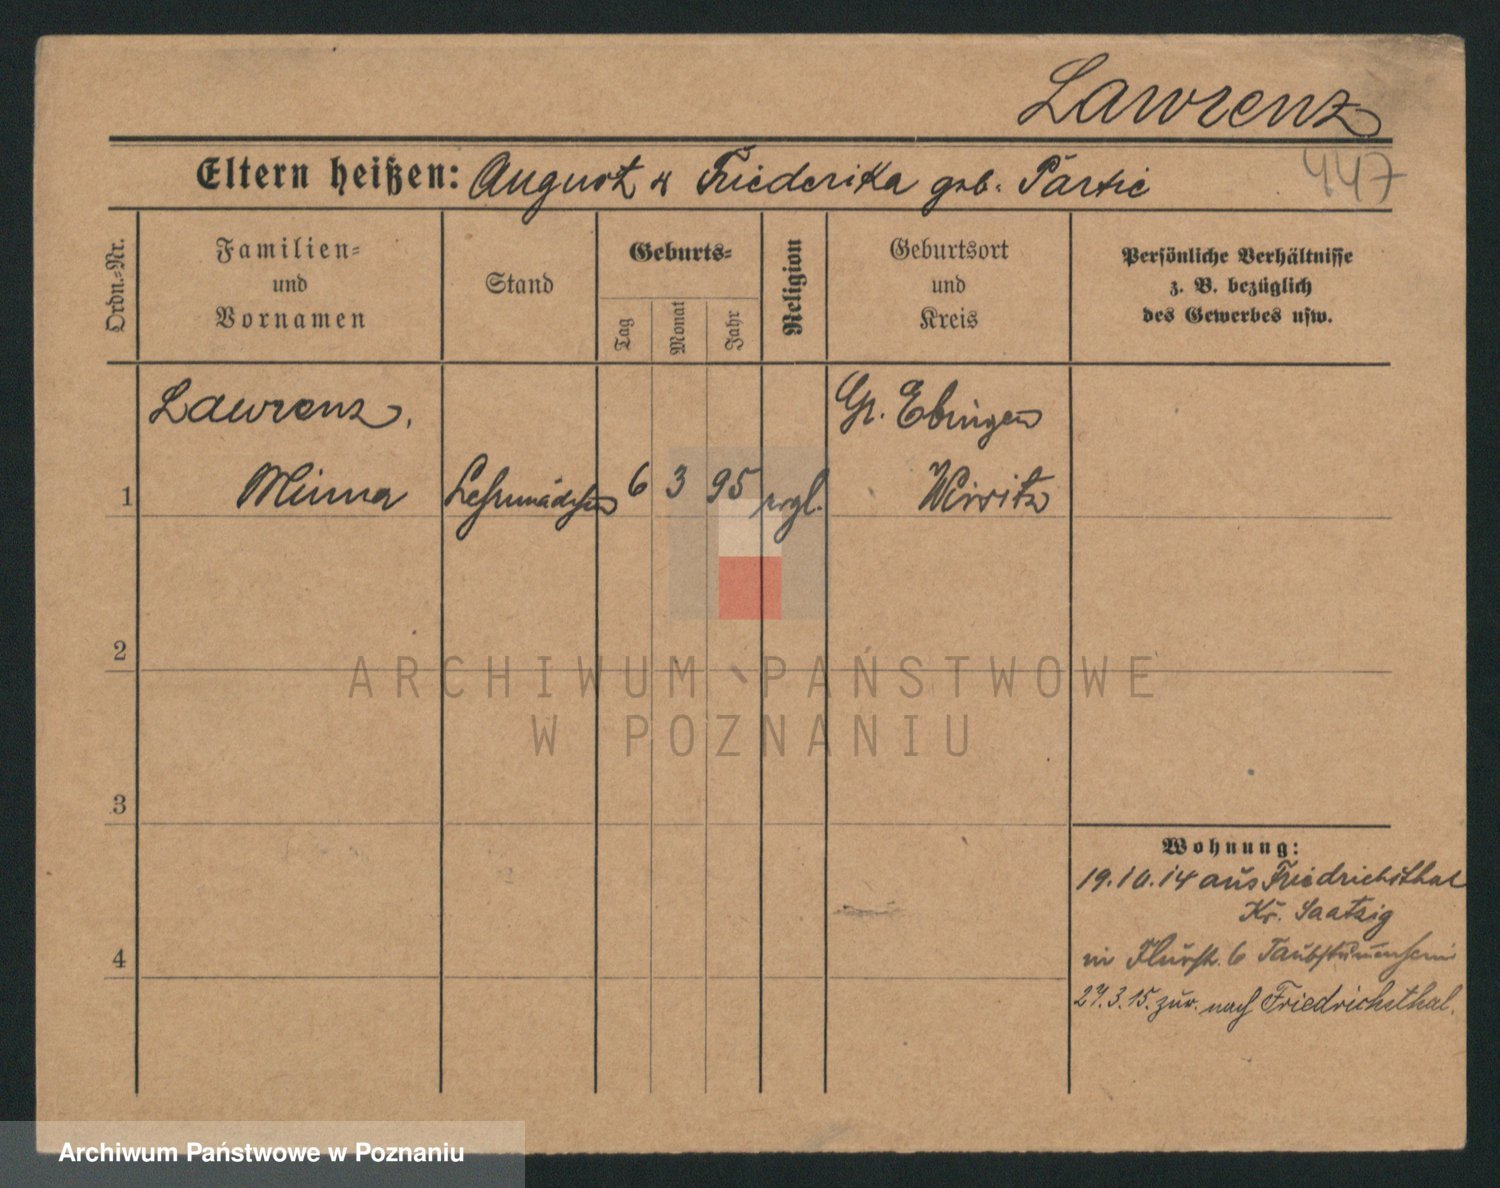 Lawrenz
447
Eltern heißen: August u Friederika geb. Partié
Ordn.=Nr.
Familien=
und
Vornamen
Stand
Geburts=
Tag
Monat
Jahr
Religion
Geburtsort
und
Kreis
Persönliche Verhältnisse
z. B. bezüglich
des Gewerbes usw.
Lawrenz,
Gr. Ebingen
1 Minna Lehrmädchen 6 3 95 evgl. Wirsitz
2
3
4
Wohnung:
19.10.14 aus Friedrichsthal
Kr. Saatzig
in Flurstr. 6
27.3.15. zur. nach Friedrichsthal.
ARCHIWUM PAŃSTWOWE
W POZNANIU
Archiwum Państwowe w Poznaniu